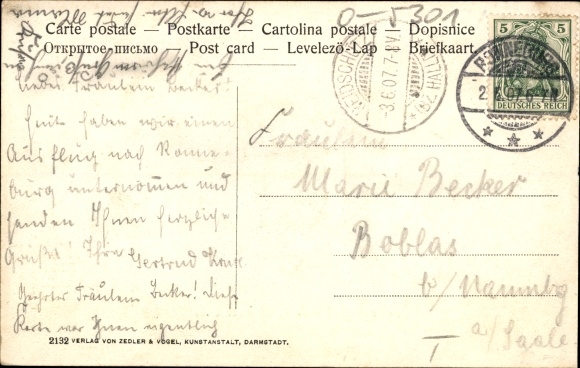 0-5301
Carte postale – Postkarte – Cartolina postale Dopisnice
Открытое-письмо Post card – Levelező-Lap Briefkaart
5 5
DEUTSCHES REICH
3.6.07.7-8V
liebes Fräulein Becker!
Heute haben wir einen
Ausflug nach Ronne-
burg unternommen und
senden Ihnen herzliche
Grüße! Ihre
Gertrud
Geehrtes Fräulein Becker! Diese
Karte war Ihnen eigentlich
Fräulein
Marie Becker
Boblas
b/Naumbg
a/Saale
2132 VERLAG VON ZEDLER & VOGEL, KUNSTANSTALT, DARMSTADT.